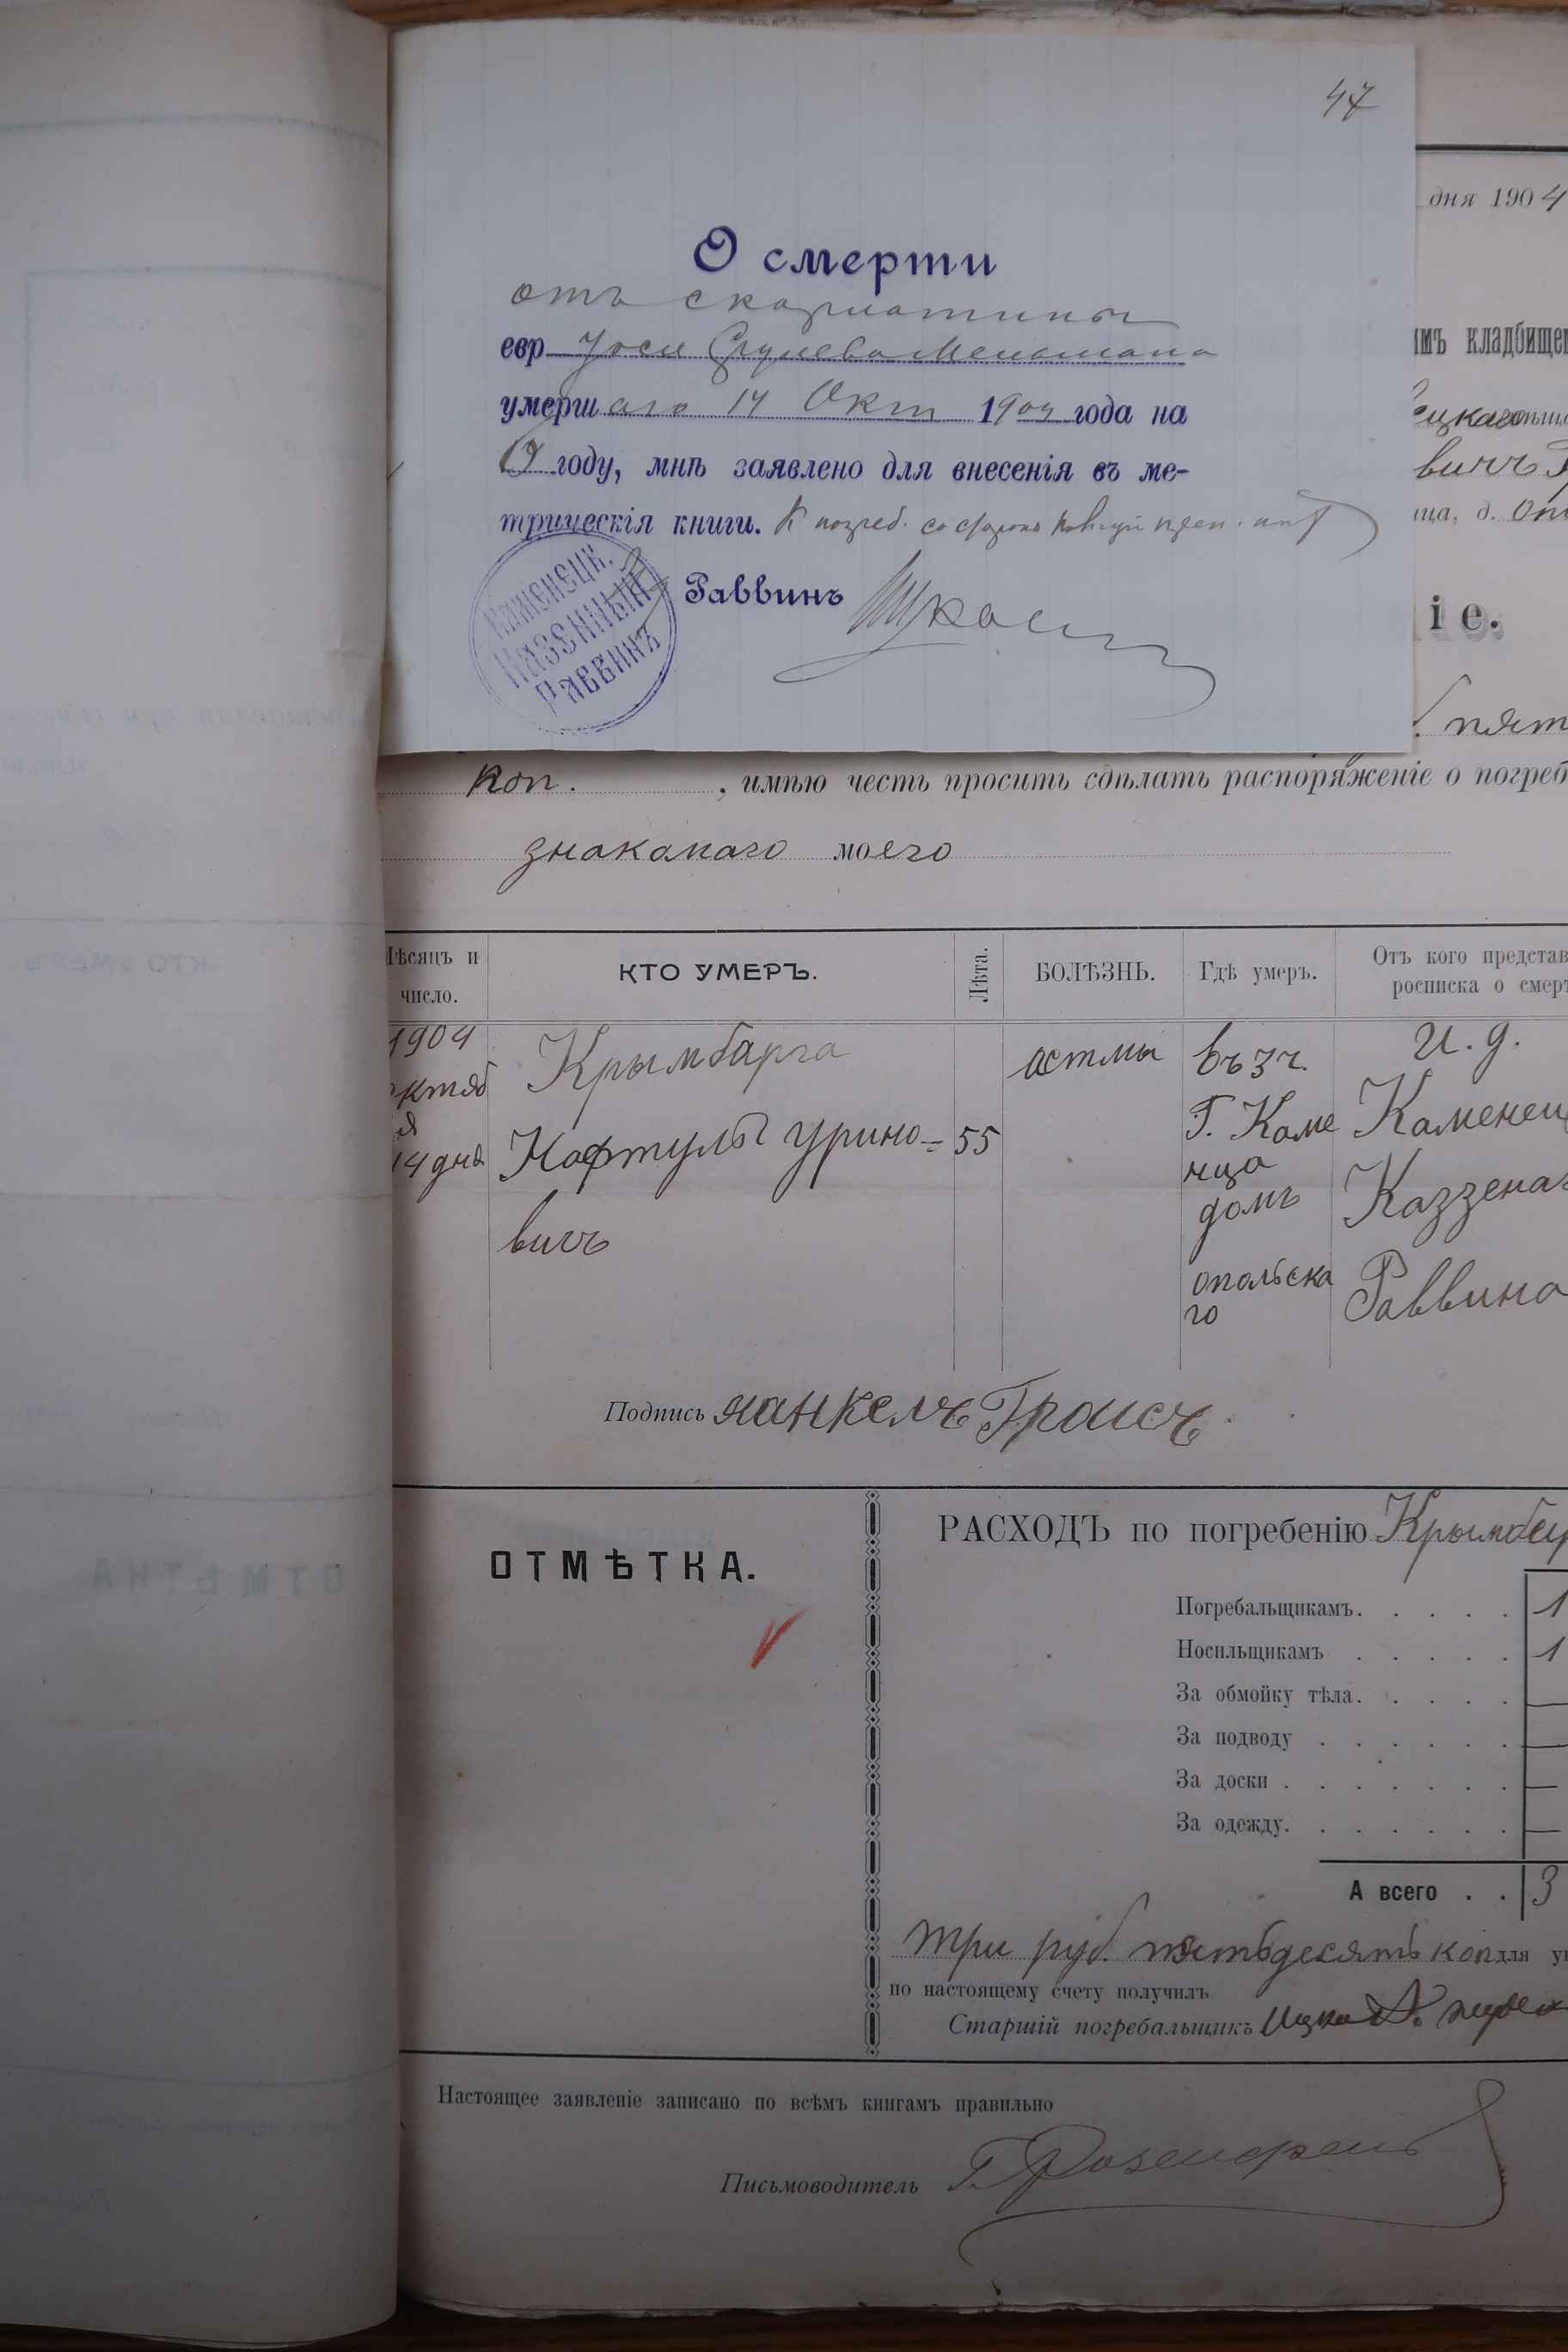 47
О смерти
отъ скарлатины
евр
умершаго 14 Окт 1904 года на
году, мнѣ заявлено для внесенія въ ме-
трическія книги. К погреб. со стороны
Раввинъ
Каменецк.
Казенный
Раввинъ
дня 1904
имъ кладбищем
ецкаго
вичъ
ица, д. Оп
іе.
пят
коп. , имѣю честь просить сдѣлать распоряженіе о погреб
знакомаго моего
Мѣсяцъ и число. КТО УМЕРЪ. Лѣта. БОЛѢЗНЬ. Гдѣ умеръ. Отъ кого представ
росписка о смерт
1904 Крымбарга астмы въ 3 ч. И. д.
октяб
ря
14 дня Нафтулы Урино= 55 Г. Каме Каменец
вичъ нца
домъ Каззенаг
опольска
го Раввина
Подпись Янкелъ Гройсъ.
ОТМѢТКА.
РАСХОДЪ по погребенію Крымбер
Погребальщикамъ. 1
Носильщикамъ 1
За обмойку тѣла. —
За подводу —
За доски —
За одежду. —
А всего 3
три руб. пятьдесятъ коп для у
по настоящему счету получилъ
Старшій погребальщикъ Ицко
Настоящее заявленіе записано по всѣмъ книгамъ правильно
Письмоводитель Г. Розенфельд